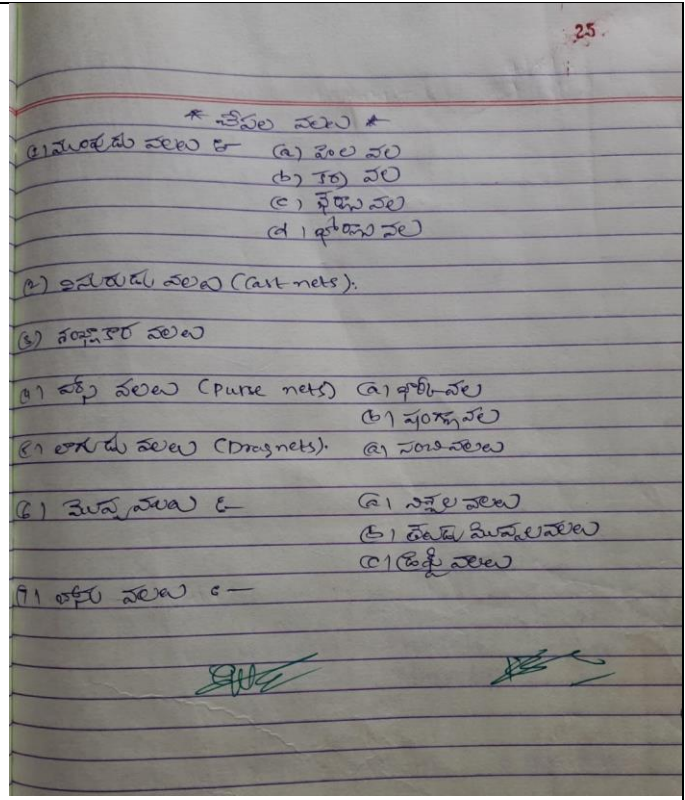 25.
* చేపల వలలు *
(1) ముంపుడు వలలు :- (a) హెల వల
(b) కర్ర వల
(c) వల
(d) వల
(2) విసురుడు వలలు (Cast nets).
(3) శంఖాకార వలలు
(4) పర్స్ వలలు (Purse nets) (a) వల
(b) వల
(5) లాగుడు వలలు (Dragnets). (a) సంచివలలు
(6) మొప్పవలలు :- (a) నిశ్చల వలలు
(b) తేలుడు మొప్పలవలలు
(c) డ్రిఫ్ట్ వలలు
(7) వలలు :-